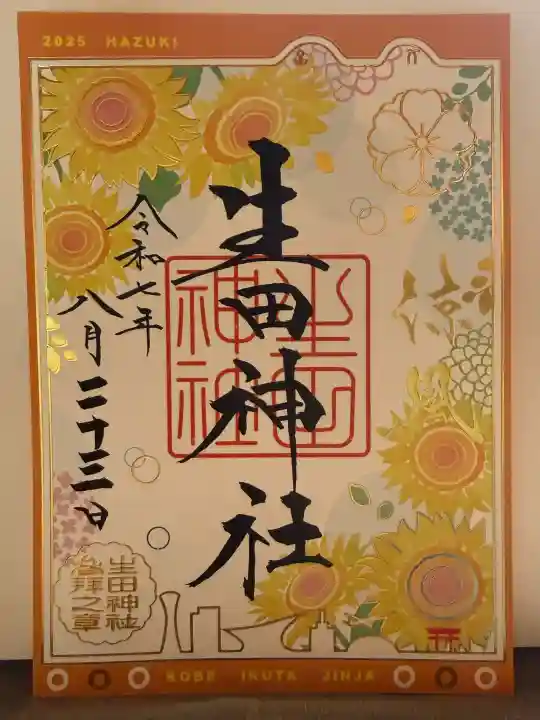 2025 HAZUKI
生田神社
令和七年
八月二十三日
生田神社
生田神社
参拝之章
KOBE IKUTA JINJA